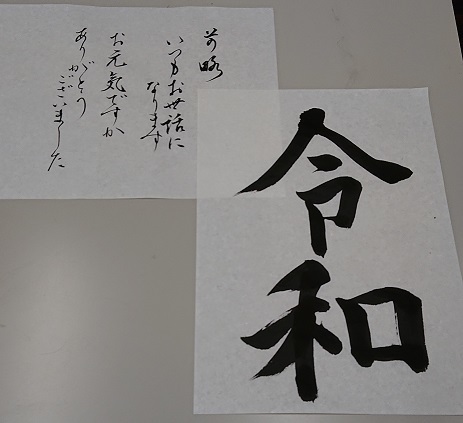 令和
前略
いつもお世話に
なります
お元気ですか
ありがとう
ございました